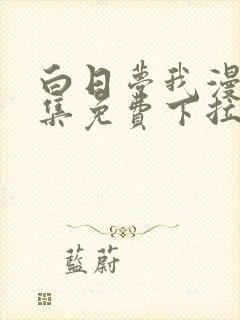 白日夢我漫
集免費下拉
藍蔚